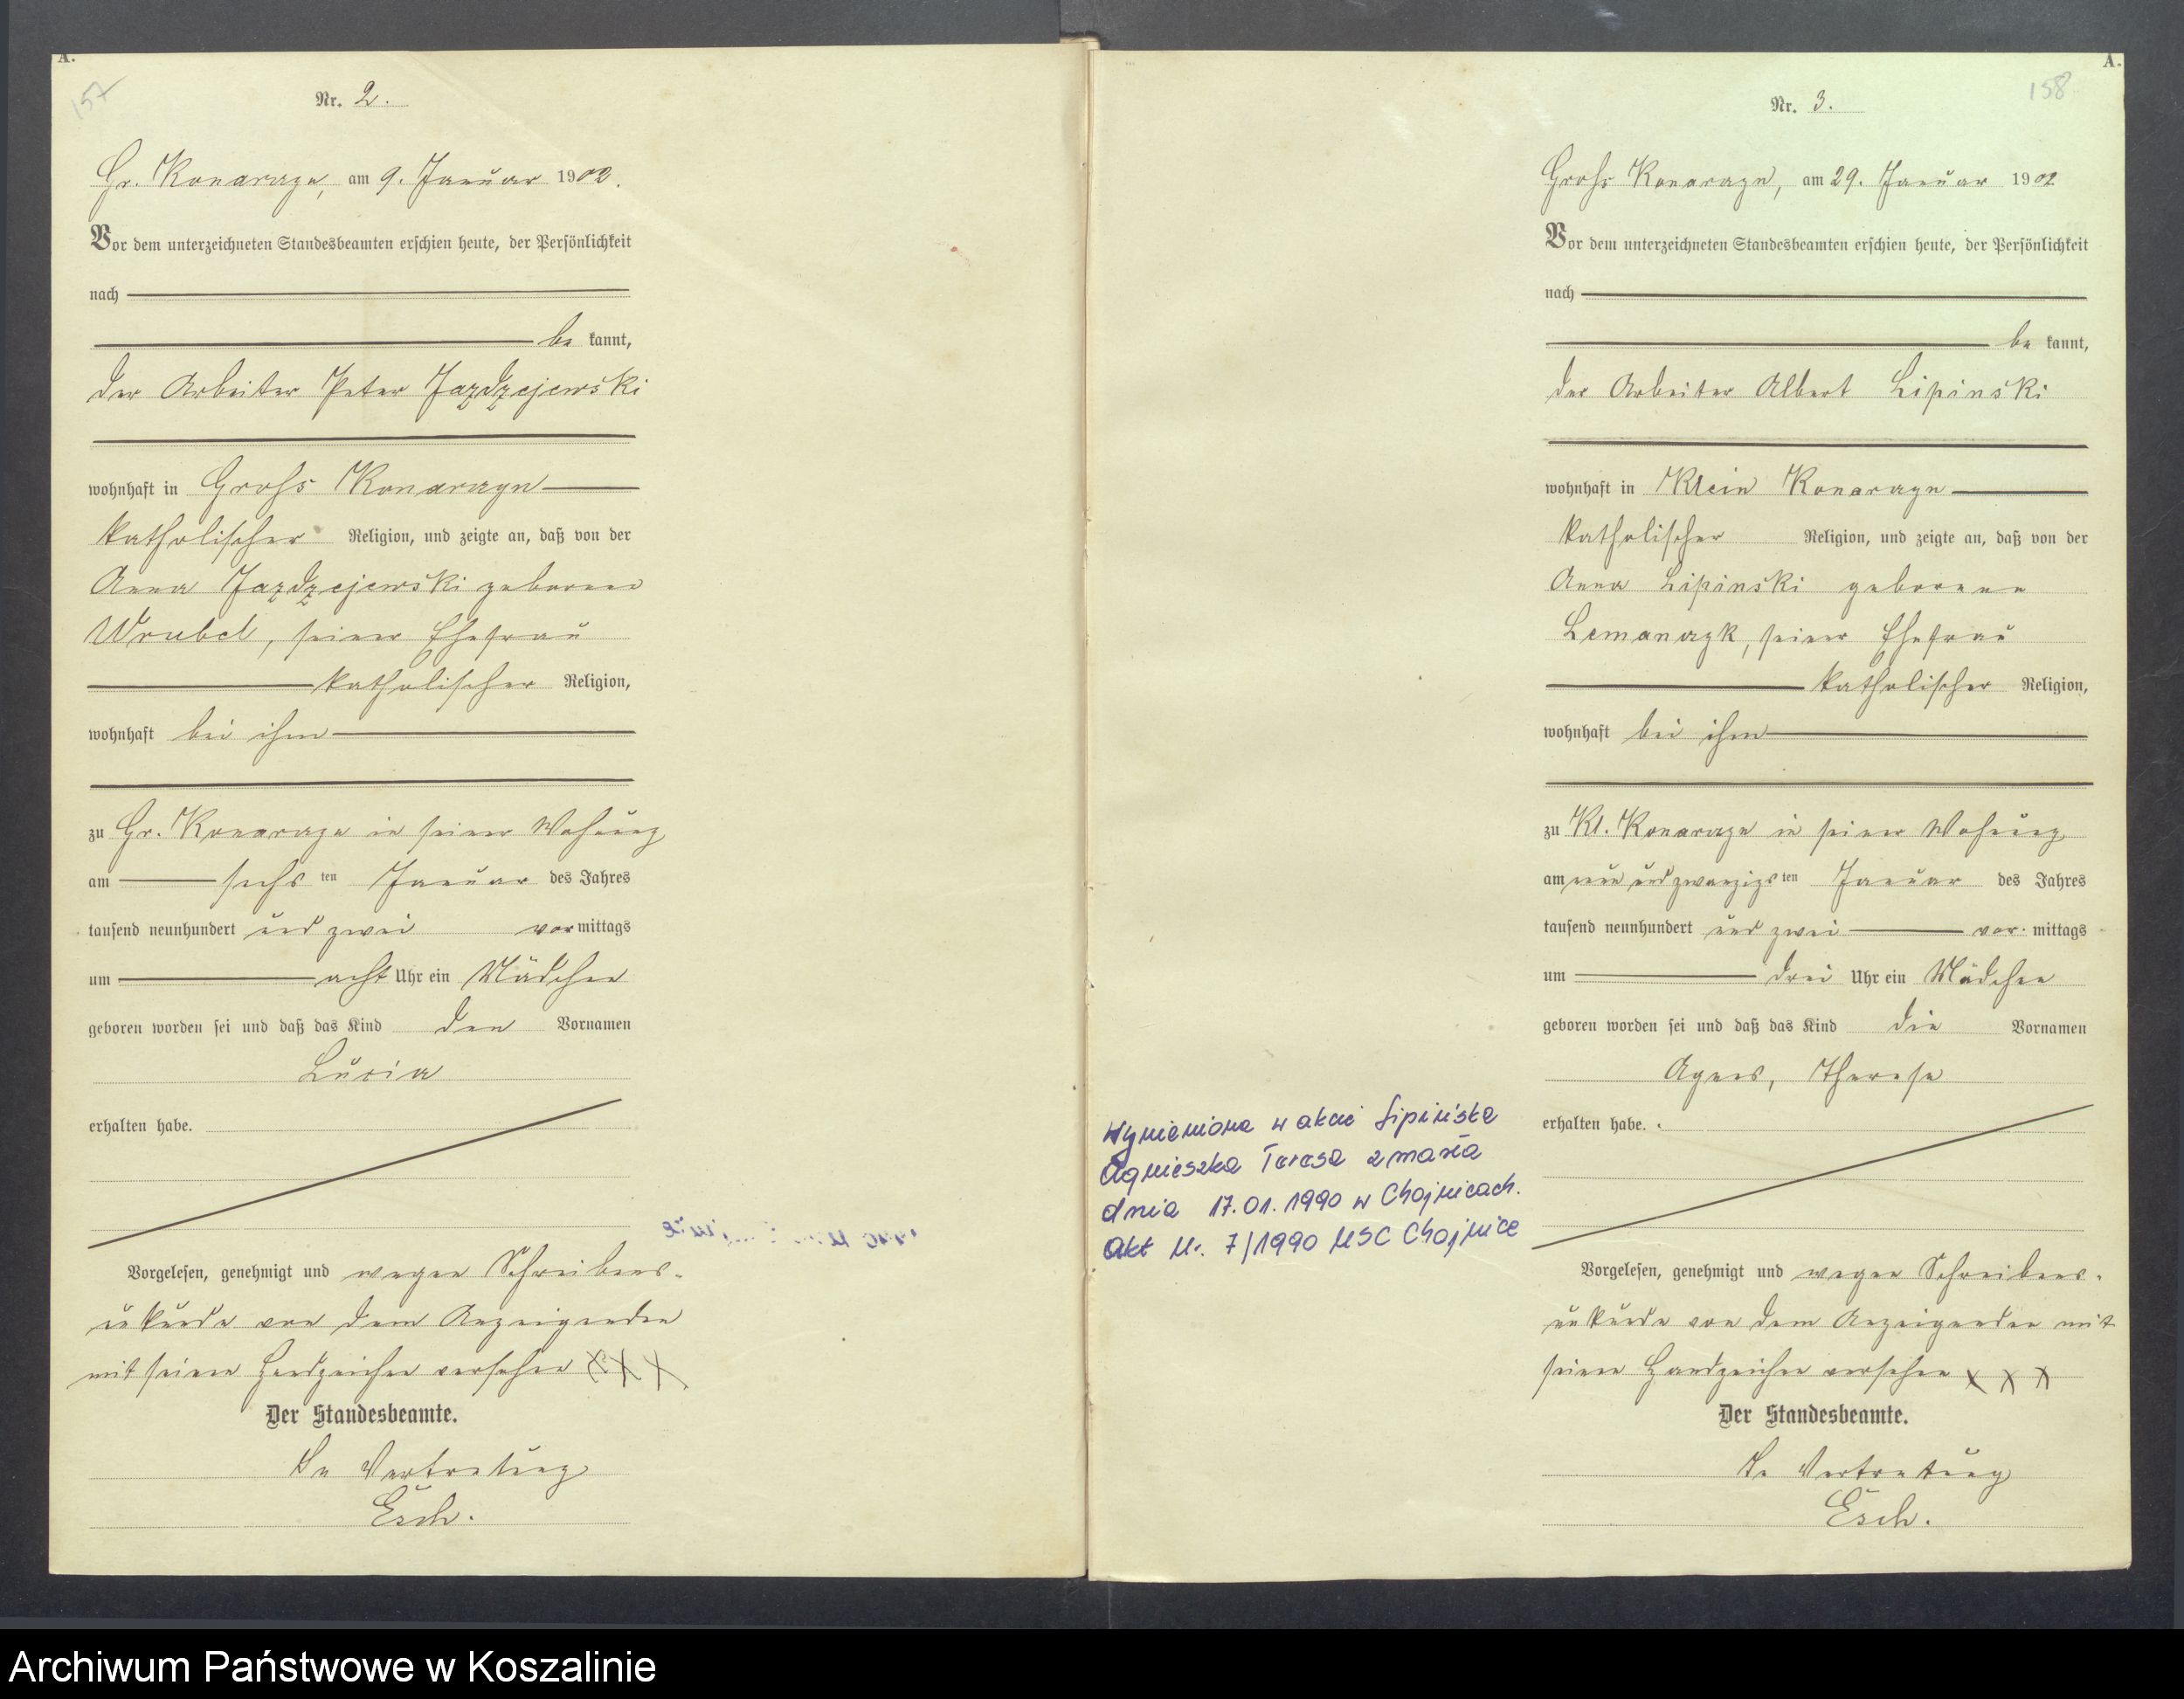 A.
157
Nr. 2.
Gr. Konarczyn, am 9. Januar 1902.
Vor dem unterzeichneten Standesbeamten erschien heute, der Persönlichkeit
nach
be kannt,
der Arbeiter Peter Jazdzejewski
wohnhaft in Groß Konarczyn
katholischer Religion, und zeigte an, daß von der
Anna Jazdzejewski geborene
Wrubel, seiner Ehefrau
katholischer Religion,
wohnhaft bei ihm
zu Gr. Konarczyn in seiner Wohnung
am sechs ten Januar des Jahres
tausend neunhundert und zwei vor mittags
um acht Uhr ein Mädchen
geboren worden sei und daß das Kind den Vornamen
Lucia
erhalten habe.
Vorgelesen, genehmigt und wegen Schreibens-
unkunde von dem Anzeigenden
mit seinem Handzeichen versehen XXX
Der Standesbeamte.
In Vertretung
Esch.
A.
158
Nr. 3.
Groß Konarczyn, am 29. Januar 1902
Vor dem unterzeichneten Standesbeamten erschien heute, der Persönlichkeit
nach
be kannt,
der Arbeiter Albert Lipinski
wohnhaft in Klein Konarczyn
katholischer Religion, und zeigte an, daß von der
Anna Lipinski geborene
Lemanczyk, seiner Ehefrau
katholischer Religion,
wohnhaft bei ihm
zu Kl. Konarczyn in seiner Wohnung
am neun und zwanzigs ten Januar des Jahres
tausend neunhundert und zwei vor mittags
um drei Uhr ein Mädchen
geboren worden sei und daß das Kind die Vornamen
Agnes, Therese
erhalten habe.
Wymieniona w akcie Lipińska
Agnieszka Teresa zmarła
dnia 17.01.1990 w Chojnicach.
Akt Nr. 7/1990 USC Chojnice
Vorgelesen, genehmigt und wegen Schreibens-
unkunde von dem Anzeigenden mit
seinem Handzeichen versehen X X X
Der Standesbeamte.
In Vertretung
Esch.
Archiwum Państwowe w Koszalinie